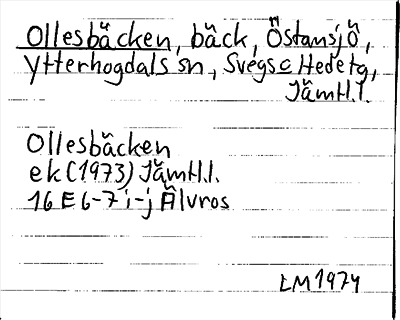 Ollesbäcken, bäck, Östansjö,
Ytterhogdals sn, Svegs o Hede tg,
Jämtl.l.
Ollesbäcken
ek (1973) Jämtl.l.
16 E 6-7 i-j Älvros
LM 1974